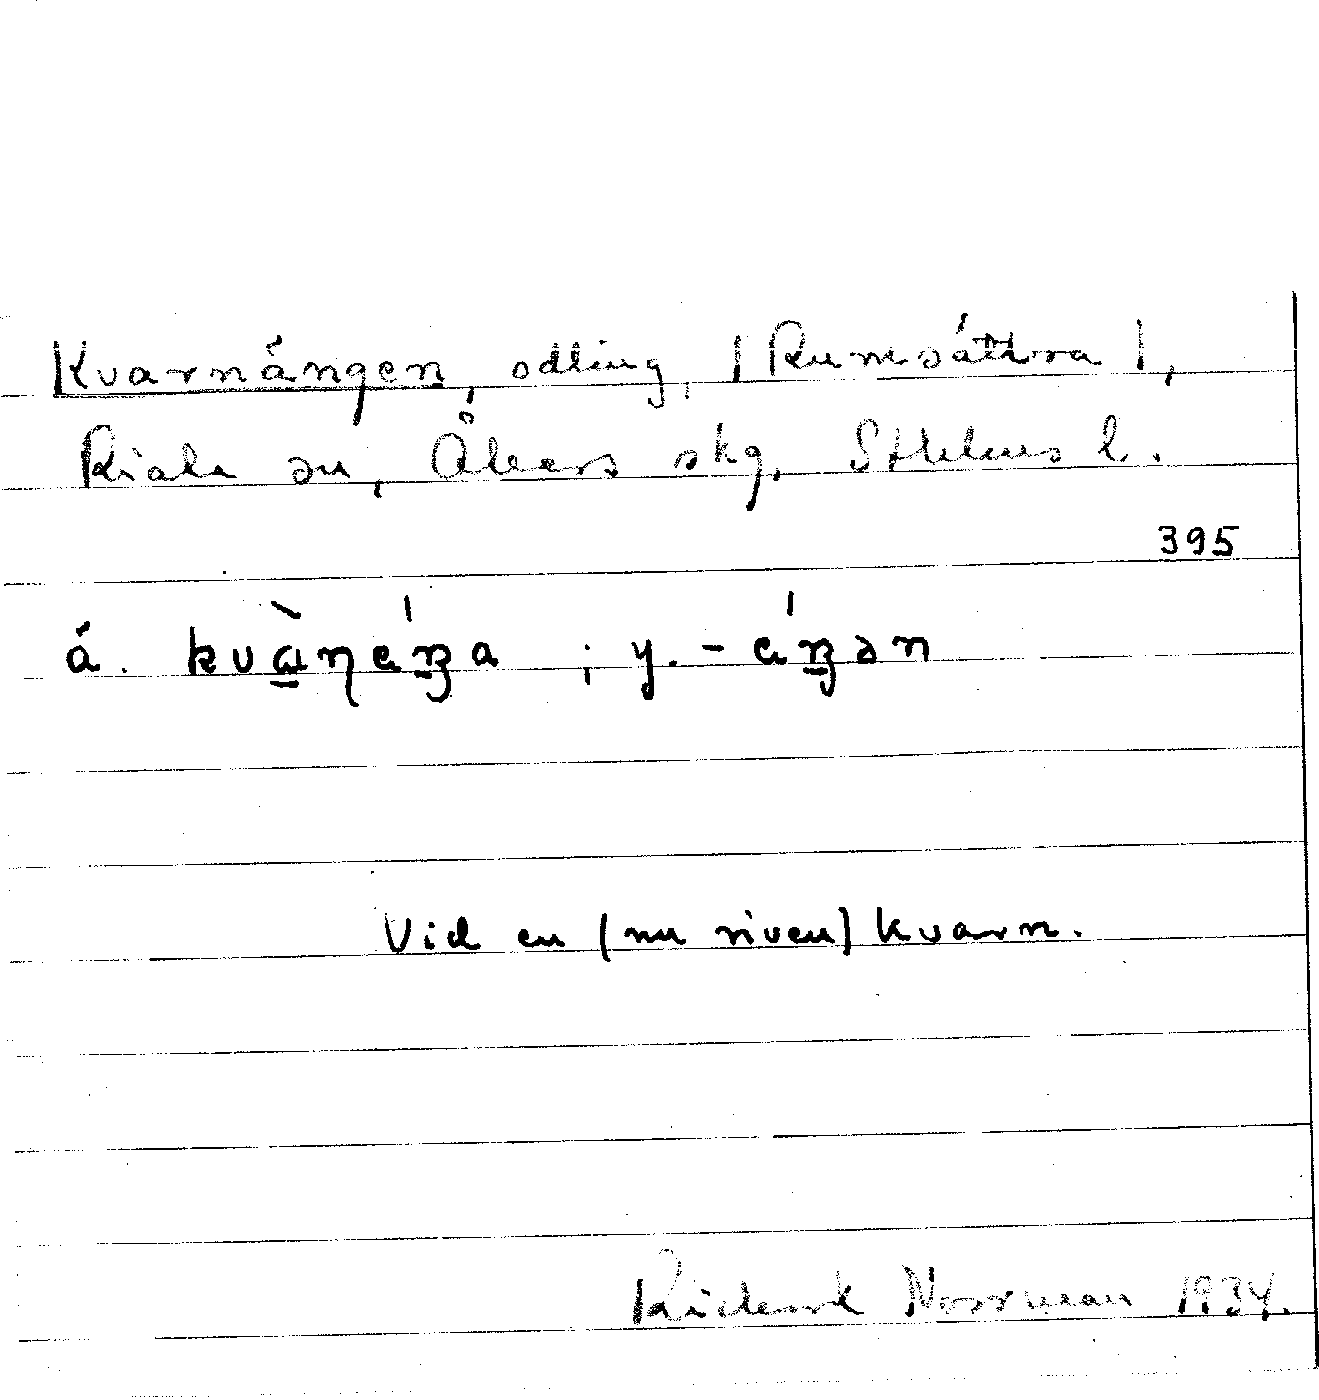 Kvarnängen, odling, | Rumsättra |,
Riala sn, Åkers skg, Sthlms l.
395
ä. kvàn̩éŋa ; y. - éŋən
Vid en (nu riven) kvarn.
Rickard Norrman 1934.